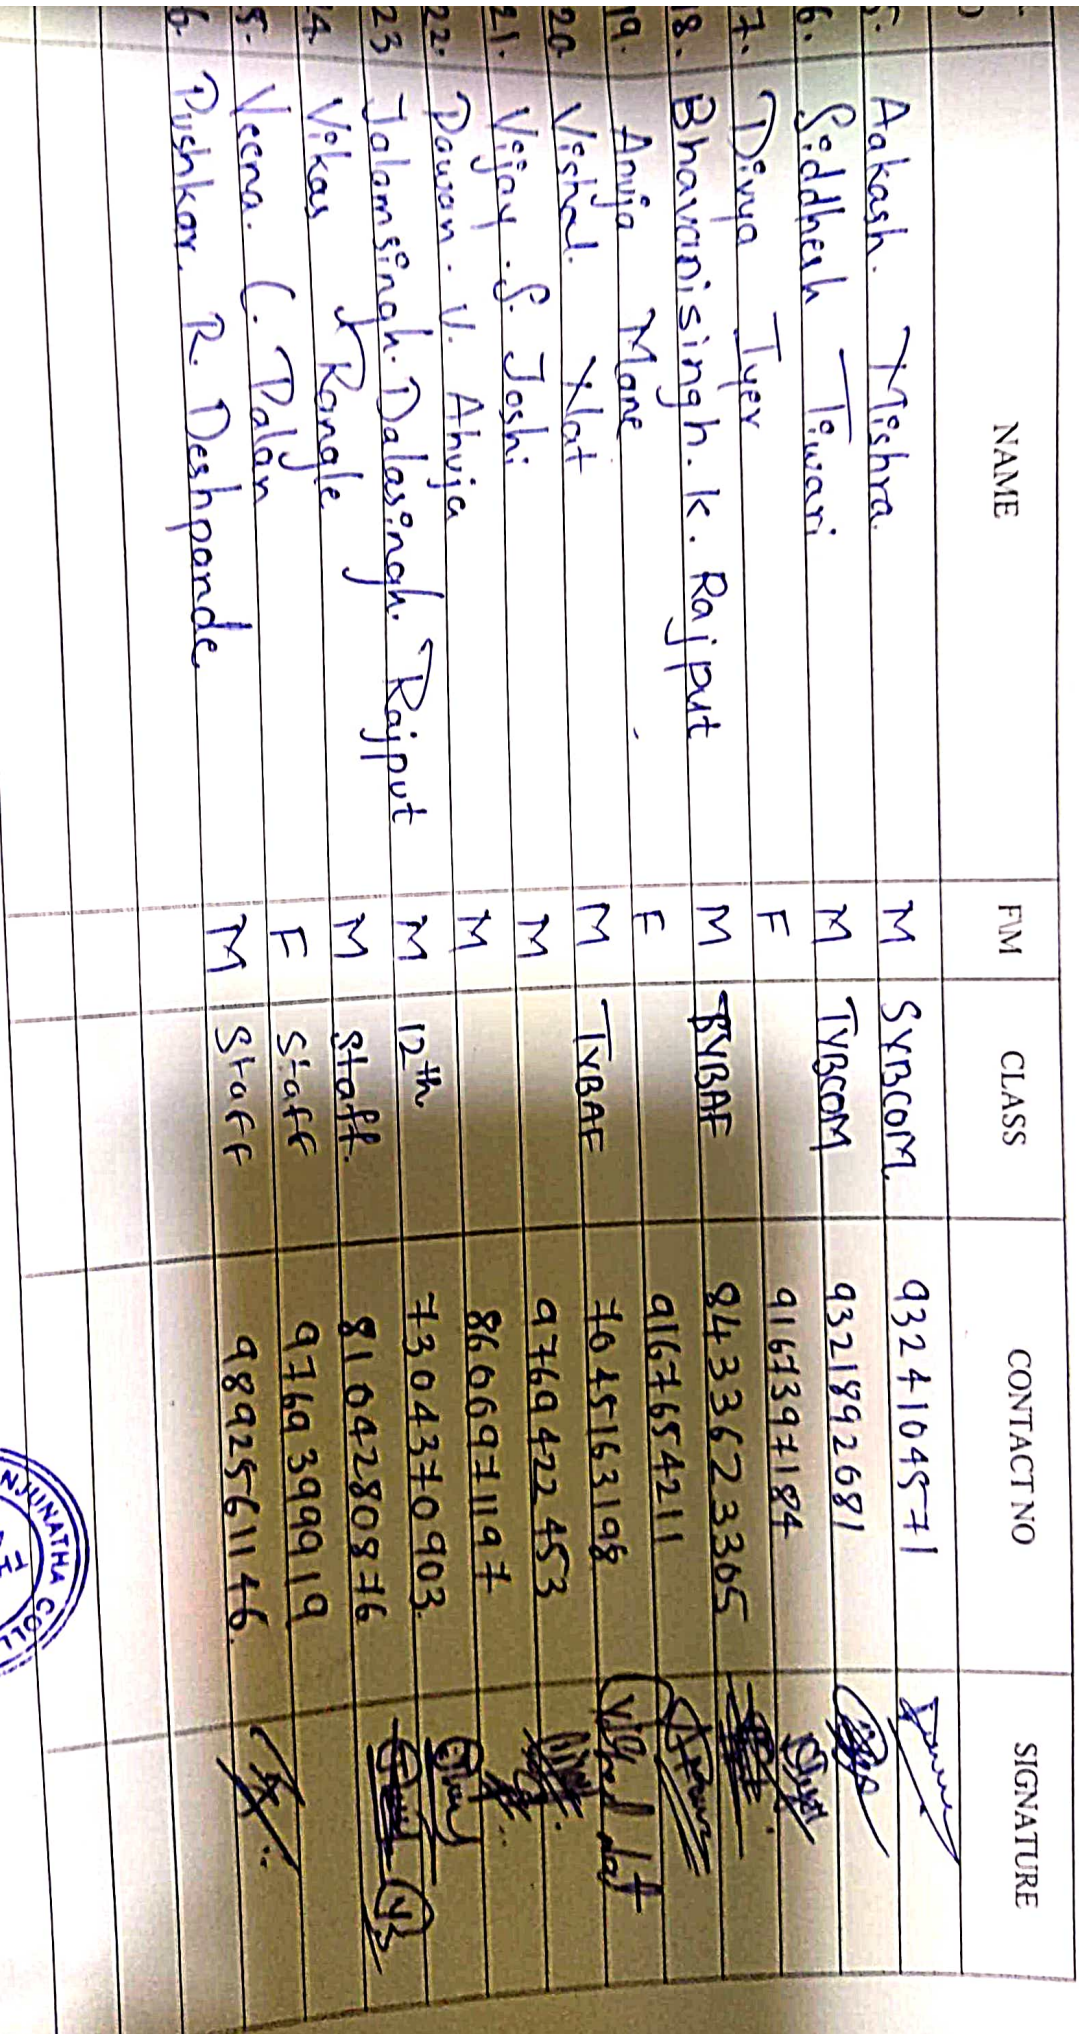 NAME F\M CLASS CONTACT NO SIGNATURE
5. Aakash. Mishra. M SYBCOM 9324104571
6. Siddhesh Tiwari M TYBCOM 9321892681
7. Divya Iyer F 9167397184
18. Bhavanisingh. K. Rajput M BYBAF 8433623305
19. Anuja Mane F 9167654211
20 Vishal. Xlat M TYBAF 7045163198 Vishal lat
21. Vijay. S. Joshi M 9769422453
22. Pawan. V. Ahuja M 8606971197
23 Jalamsingh. Dalasingh. Rajput M 12th 7304370903.
4. Vikas Rangle M Staff. 8104280876
5. Veena. C. Palan F Staff 9769399919
6. Pushkar. R. Deshpande M Staff 9892561146.
NJUNATHA COLL